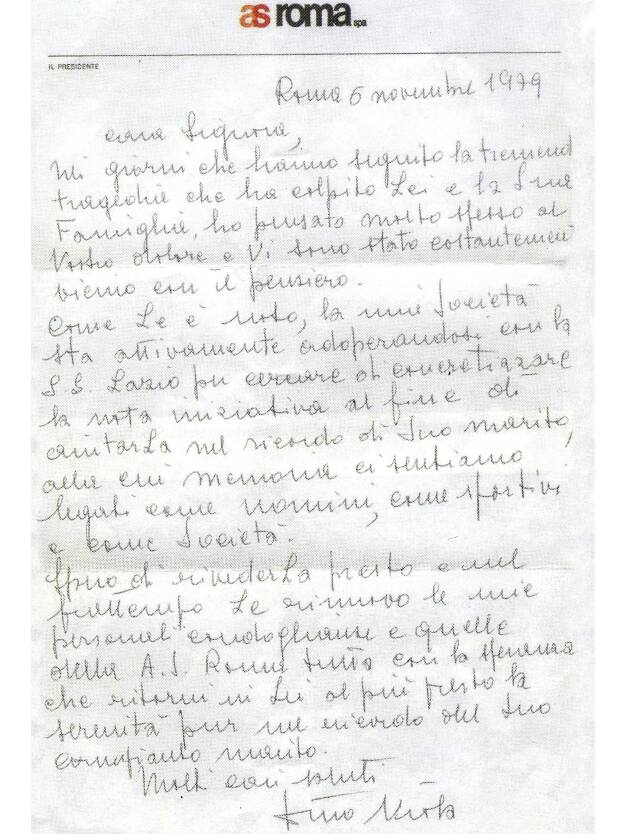 as roma spa
IL PRESIDENTE
Roma 5 novembre 1979
cara Signora,
nei giorni che hanno seguito la tremend
tragedia che ha colpito Lei e la Sua
Famiglia, ho pensato molto spesso al
Vostro dolore e Vi sono stato costantemen
vicino con il pensiero.
Come Le è noto, la mia Società
sta attivamente adoperandosi con la
S.S. Lazio per cercare di concretizzare
la nota iniziativa al fine di
aiutarLa nel ricordo di Suo marito,
alla cui memoria ci sentiamo
legati come uomini, come sportivi
e come Società.
Spero di rivederLa presto e nel
frattempo Le rinnovo le mie
personali condoglianze e quelle
della A.S. Roma tutta con la speranza
che ritorni in Lei al più presto la
serenità pur nel ricordo del Suo
compianto marito.
Molti cari saluti